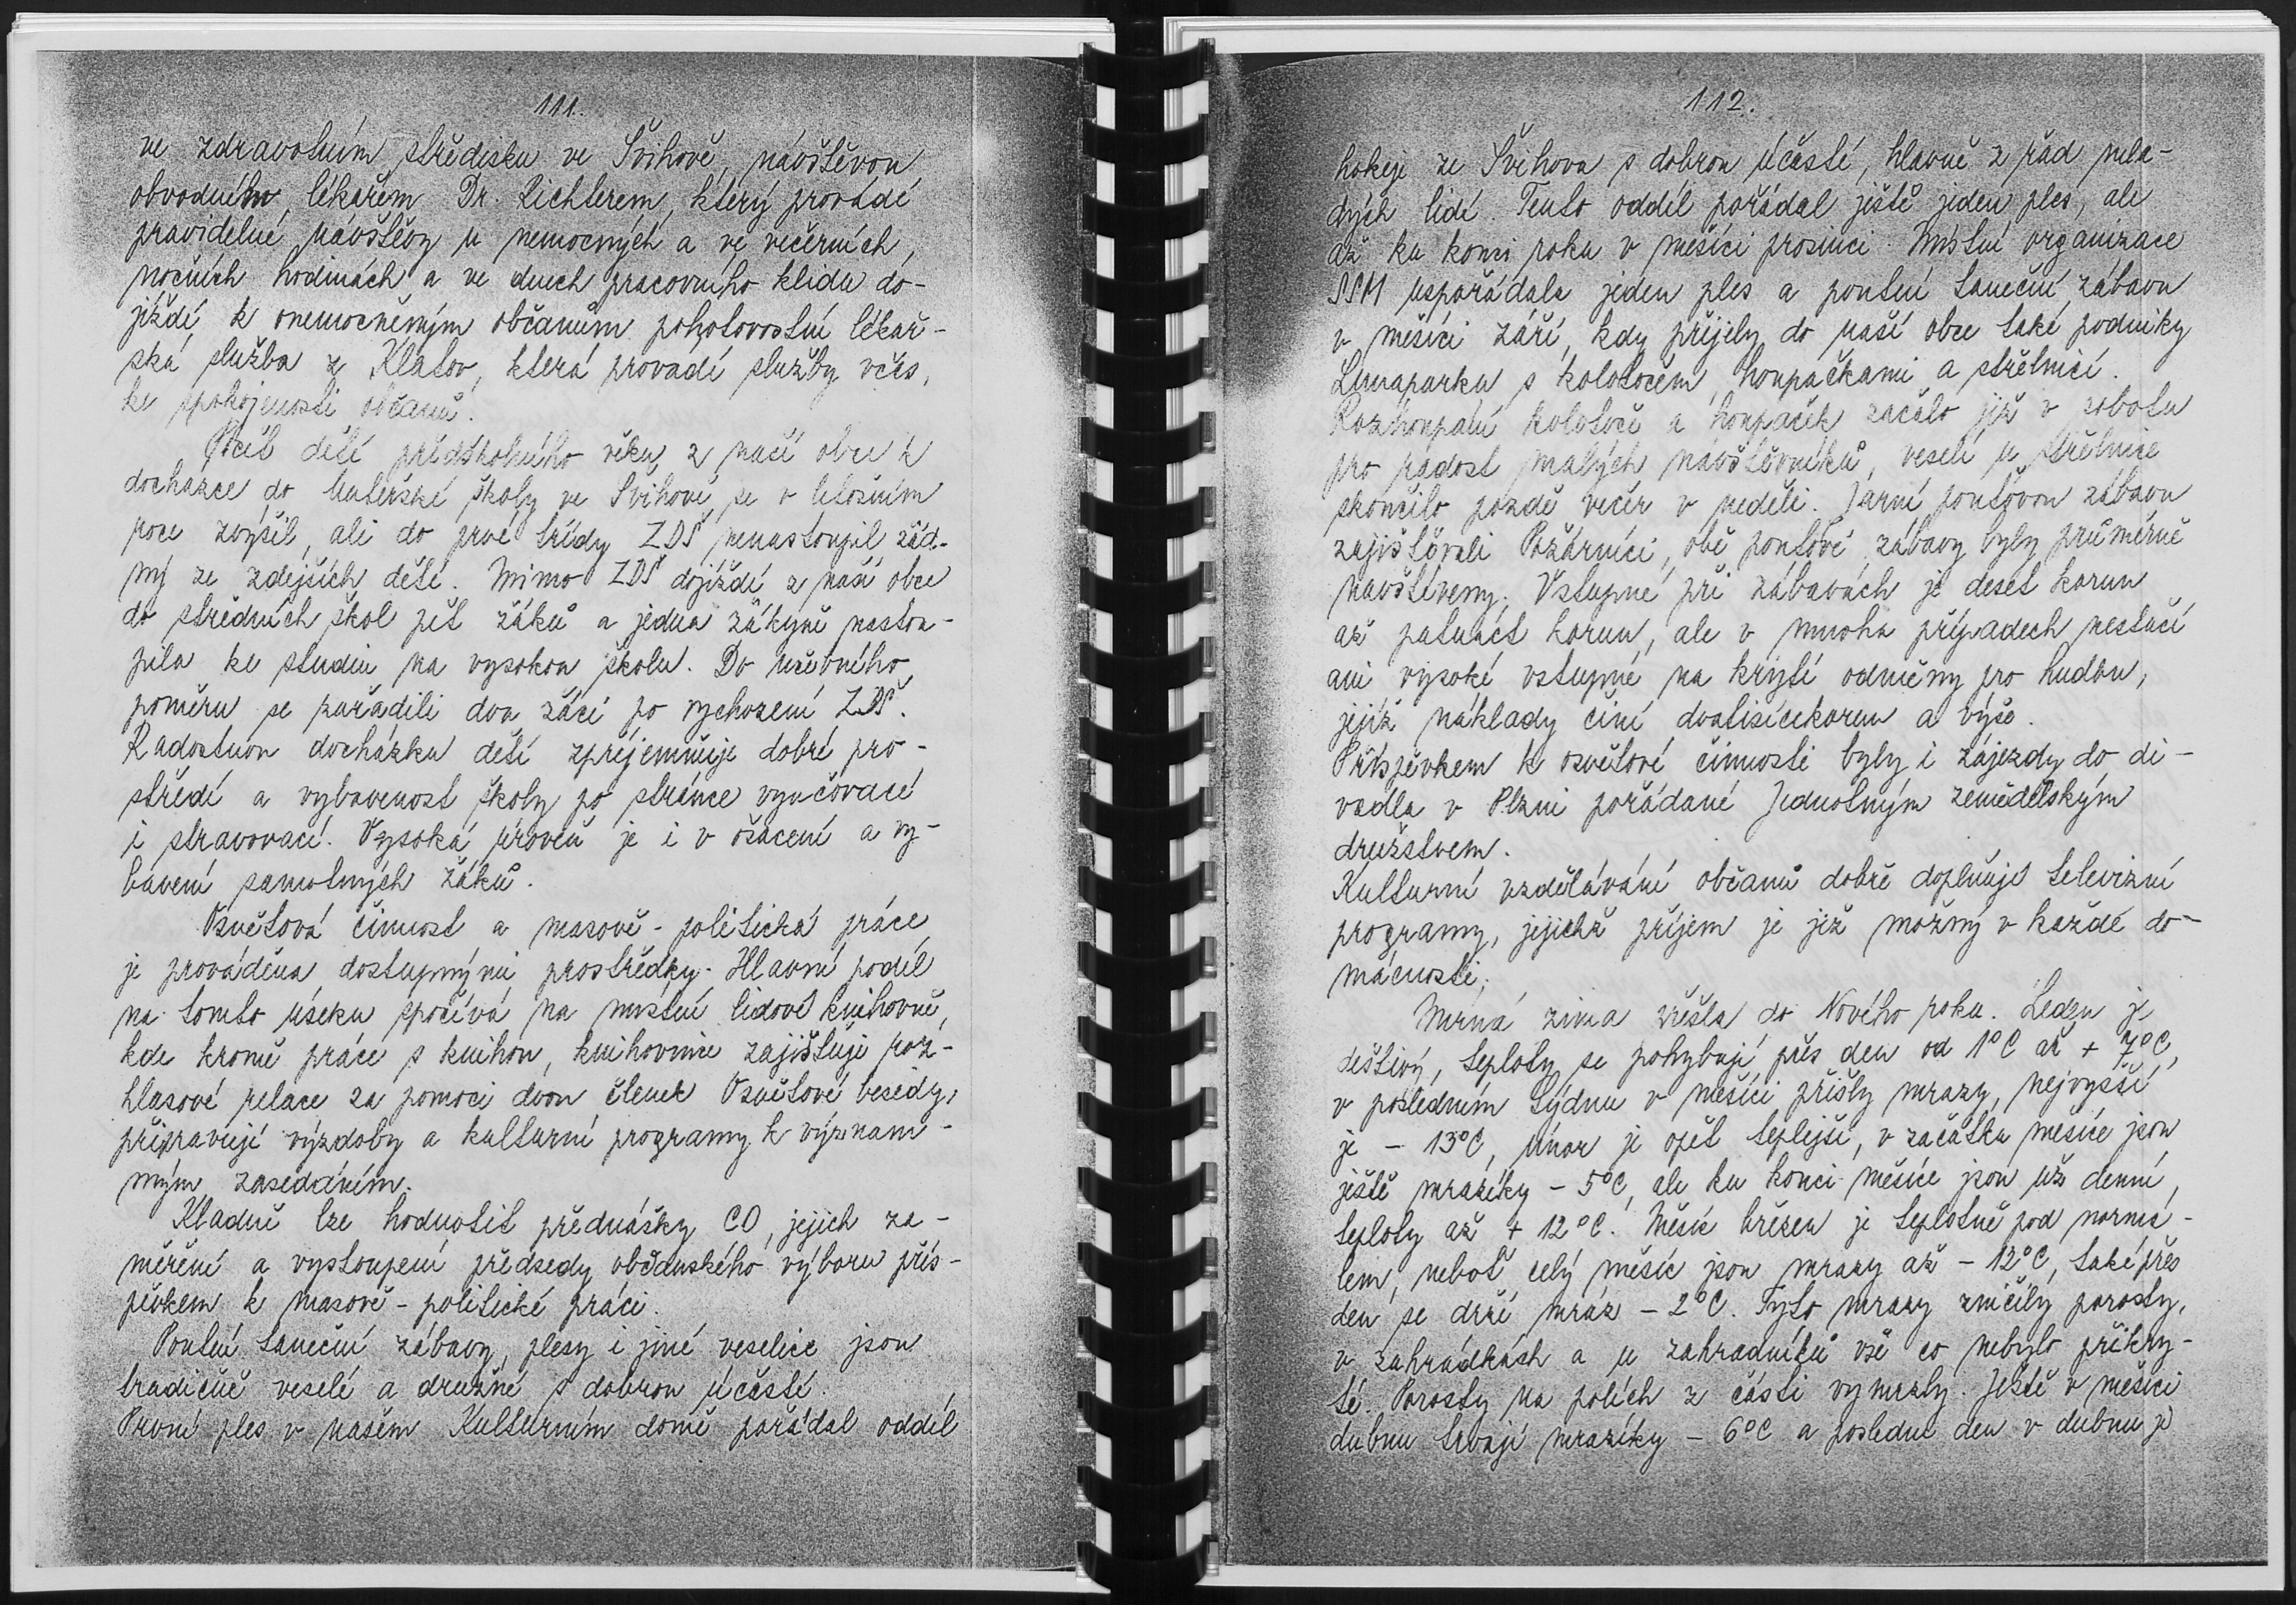 111.
ve zdravotním středisku ve Švihově, návštěvou
obvodního lékařem Dr. Richterem, který provádí
pravidelné návštěvy u nemocných a ve večerních,
nočních hodinách a ve dnech pracovního klidu do-
jíždí k onemocněným občanům pohotovostní lékař-
ská služba z Klatov, která provádí služby včas,
ke spokojenosti občanů.
Počet dětí předškolního věku z naší obce k
docházce do Mateřské školy ve Švihově, se v letošním
roce zvýšil, ale do prvé třídy ZDŠ nenastoupil žád-
ný ze zdejších dětí. Mimo ZDŠ dojíždí z naší obce
do středních škol pět žáků a jedna žákyně nastou-
pila ke studiu na vysokou školu. Do učebního
poměru se zařadili dva žáci po vychození ZDŠ.
Radostnou docházku dětí zpříjemňuje dobré pro-
středí a vybavenost školy po stránce vyučovací
i stravovací. Vysoká úroveň je i v ošacení a vy-
bavení samotných žáků.
Osvětová činnost a masově-politická práce
je prováděna dostupnými prostředky. Hlavní podíl
na tomto úseku spočívá na místní lidové knihovně,
kde kromě práce s knihou, knihovnice zajišťuje roz-
hlasové relace za pomoci dvou členek Osvětové besedy,
připravují výzdoby a kulturní programy k význam-
ným zasedáním.
Kladně lze hodnotit přednášky CO, jejich za-
měření a vystoupení předsedy občanského výboru přís-
pěvkem k masově-politické práci.
Poutní taneční zábavy, plesy i jiné veselice jsou
tradičně veselé a družné s dobrou účastí.
První ples v našem Kulturním domě pořádal oddíl
112.
hokeje ze Švihova s dobrou účastí, hlavně z řad mla-
dých lidí. Tento oddíl pořádal ještě jeden ples, ale
až ku konci roku v měsíci prosinci. Místní organizace
SSM uspořádala jeden ples a poutní taneční zábavu
v měsíci září, kdy přijely do naší obce také podniky
Lunaparku s kolotočem, houpačkami a střelnicí.
Rozhoupání kolotoče a houpaček začalo již v sobotu
pro radost malých návštěvníků, veselí u střelnice
skončilo pozdě večer v neděli. Jarní pouťovou zábavu
zajišťovali Požárníci, obě pouťové zábavy byly průměrně
navštíveny. Vstupné při zábavách je deset korun
až patnáct korun, ale v mnoha případech nestačí
ani vysoké vstupné na krytí odměny pro hudbu,
jejíž náklady činí dvatisícekorun a výše.
Příspěvkem k osvětové činnosti byly i zájezdy do di-
vadla v Plzni pořádané Jednotným zemědělským
družstvem.
Kulturní vzdělávání občanů dobře doplňuje televizní
programy, jejichž příjem je již možný v každé do-
mácnosti.
Mírná zima vešla do Nového roku. Leden je
deštivý, teploty se pohybují přes den od 1°C až + 7°C,
v posledním týdnu v měsíci přišly mrazy, nejvyšší
je - 13°C, únor je opět teplejší, v začátku měsíce jsou
ještě mrazíky - 5°C, ale ku konci měsíce jsou už denní
teploty až + 12°C. Měsíc březen je teplotně pod normá-
lem, neboť celý měsíc jsou mrazy až - 12°C, také přes
den se drží mráz - 2°C. Tyto mrazy zničily porosty,
v zahrádkách a u zahradníků vše co nebylo přikry-
té. Porosty na polích z části vymrzly. Ještě v měsíci
dubnu trvají mrazíky - 6°C a poslední den v dubnu je